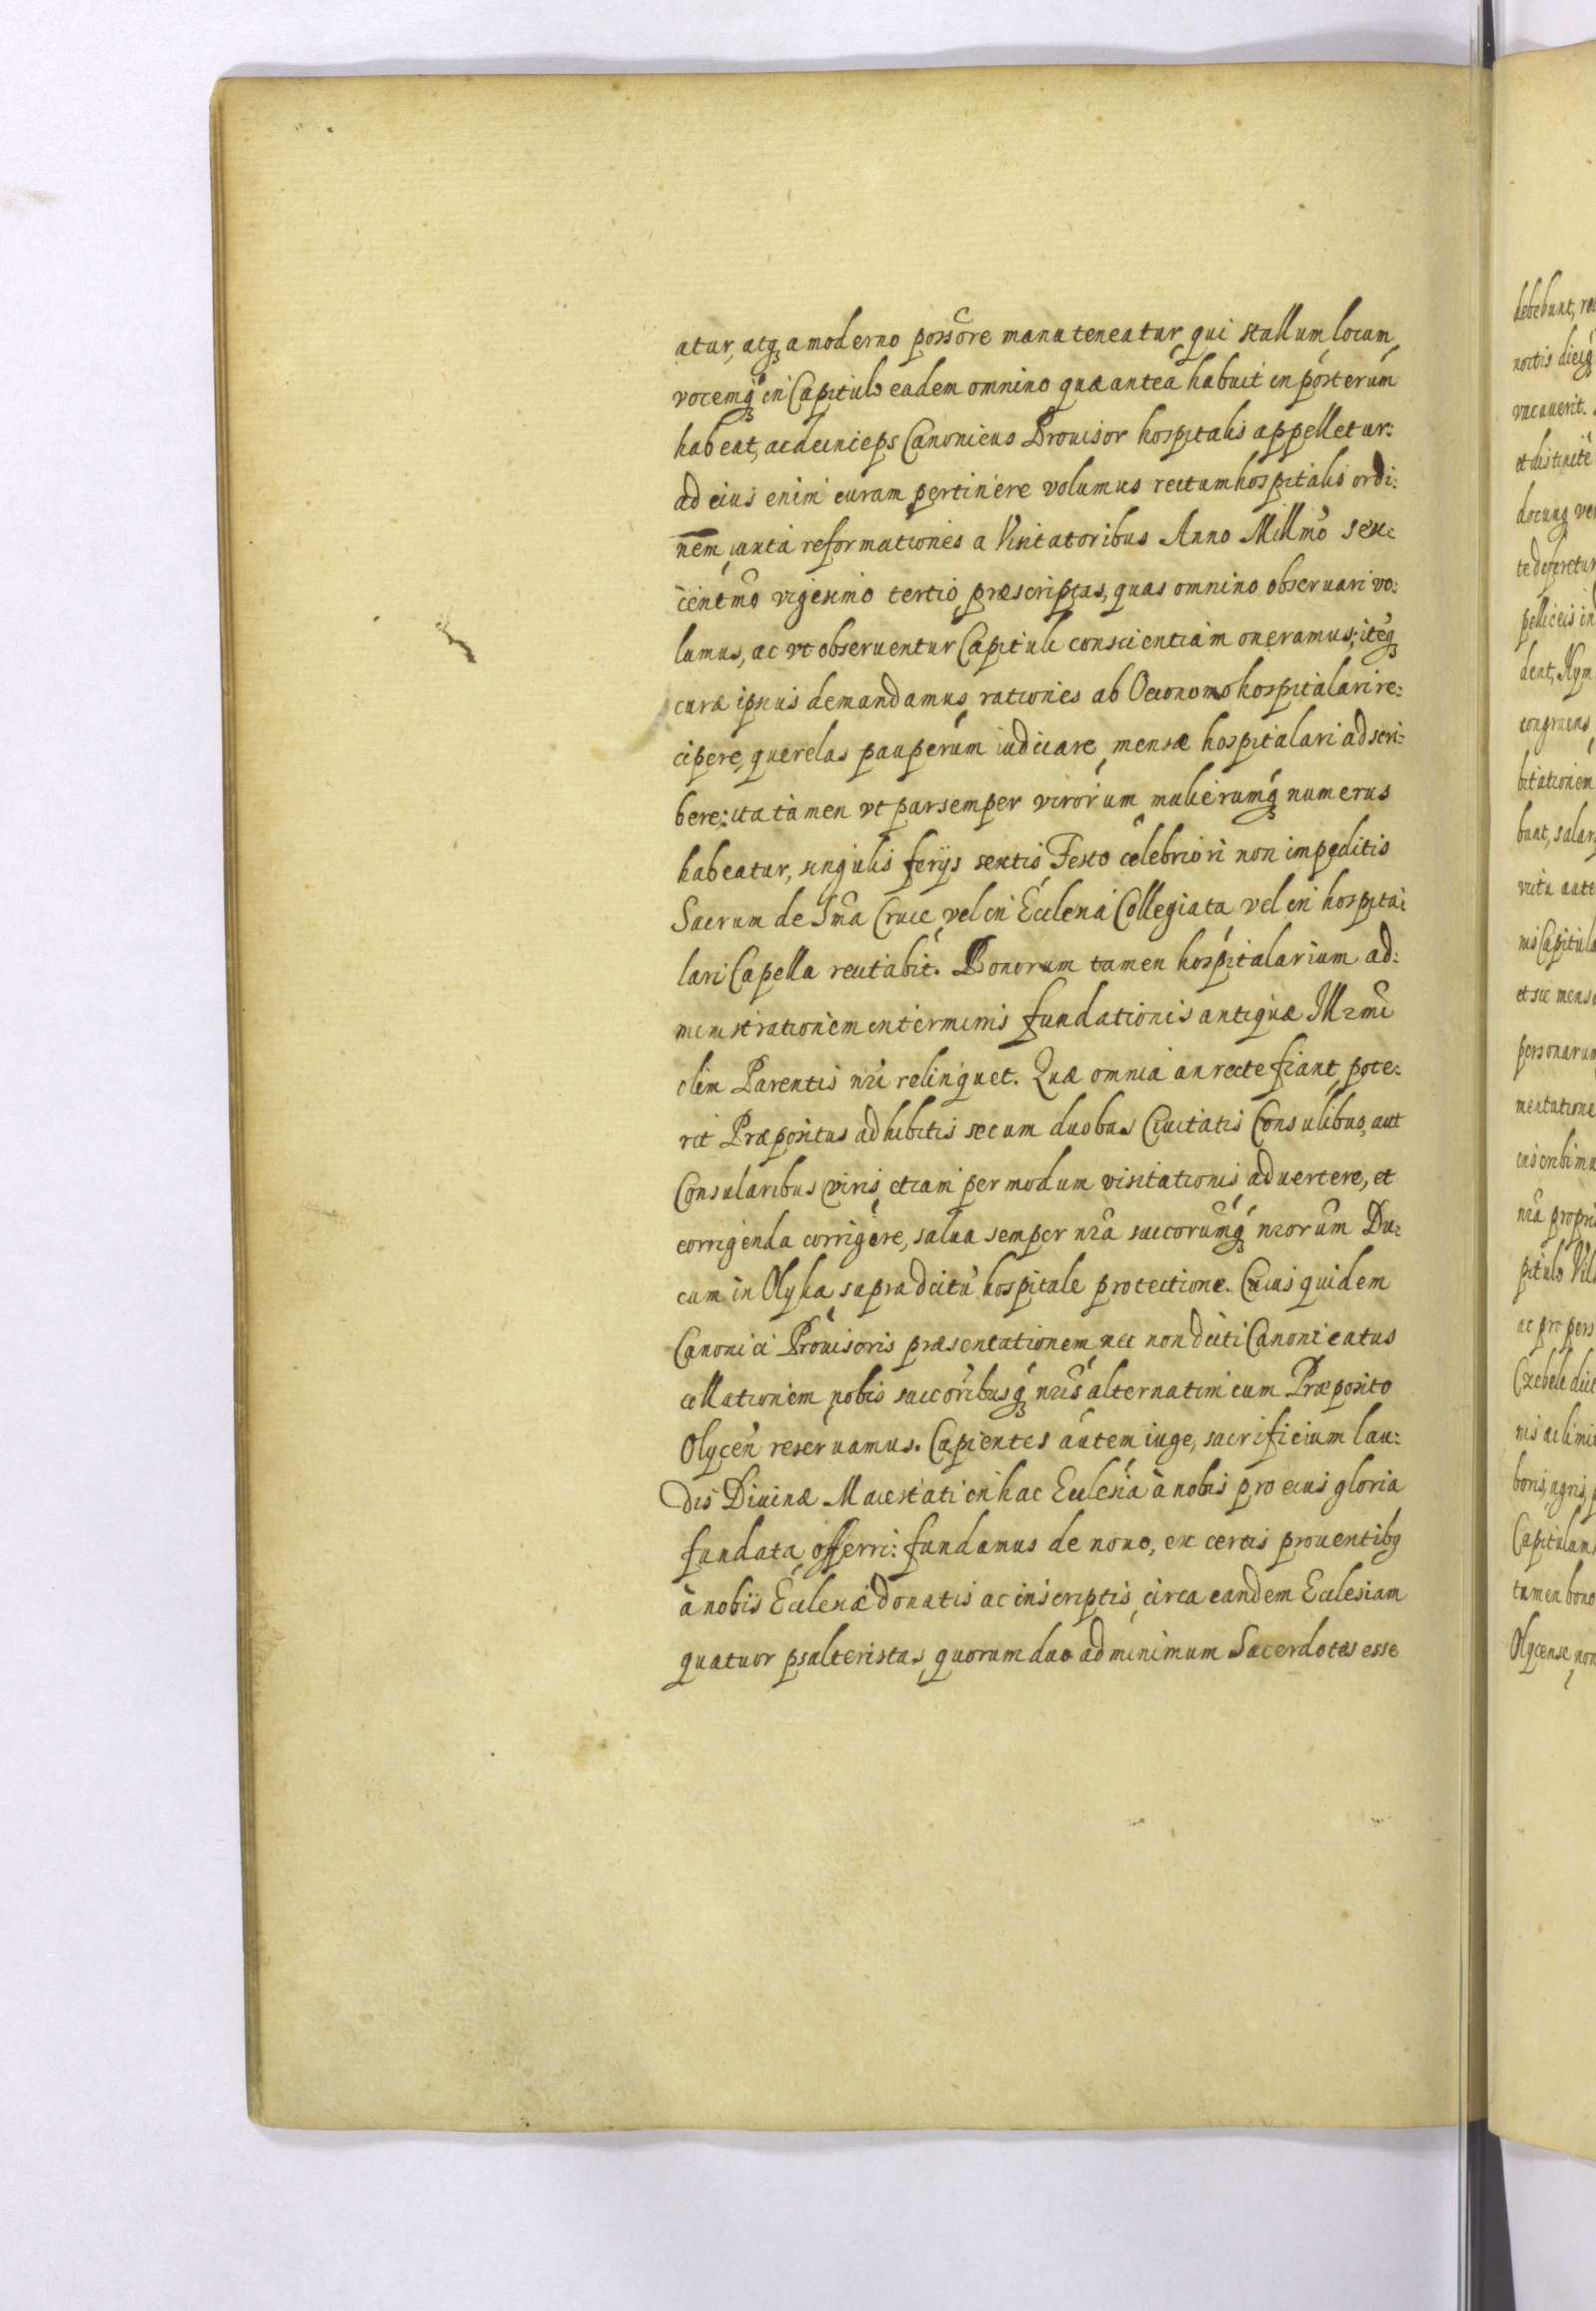 atur, atq₃ a moderno possōre manuteneatur, qui stallum, locum,
vocemq₃ in Capitulo eadem omnino quæ antea habuit in posterum
habeat, ac deinceps Canonicus Provisor hospitalis appelletur:
ad eius enim curam pertinere volumus rectum hospitalis ordi:
nem, iuxta reformationes a Visitatoribus Anno Millmō sex:
centmō vigesimo tertio præscriptas, quas omnino observari vo:
lumus, ac vt observentur Capituli conscientiam oneramus; itēq₃
curæ ipsius demandamus, rationes ab Oeconomo hospitalari re:
cipere, querelas pauperum iudicare, mensæ hospitalari adscri:
bere: ita tamen vt par semper virorum mulierumq₃ numerus
habeatur, singulis ferijs sextis, Festo celebriori non impeditis
Sacrum de Smā Cruce, vel in Ecclesia Collegiata, vel in hospita:
lari Capella recitabit. Bonorum tamen hospitalarium ad:
ministrationem in terminis fundationis antiquæ Illr̄mi
olim Parentis nr̄i relinquet. Quæ omnia an recte fiant, pote:
rit Præpositus adhibitis secum duobus Civitatis Consulibus, aut
Consularibus viris, etiam per modum visitationis, advertere, et
corrigenda corrigere, salva semper nr̄a succorumq₃ nr̄orum Du:
cum in Olyka supradcitū hospitale protectione. Cuius quidem
Canonici Provisoris præsentationem, nec non dciti Canonicatus
collationem, nobis succoribusq₃ nr̄is alternatim cum Præposito
Olycen̄ reservamus. Cupientes autem iuge, sacrificium lau:
dis Divinæ Maiestati in hac Ecclesia à nobis pro eius gloria
fundata, offerri: fundamus de novo, ex certis proventibq
à nobis Ecclesiæ donatis ac inscriptis, circa eandem Ecclesiam
quatuor psalteristas, quorum duo ad minimum Sacerdotes esse
debebunt,
noctis dieiq₃
vacaverit.
et distincte
te deferetur
pelliceis in
dent, Hym
congruens
bitationem
bunt, salar
victu aute
nis Capitula
et sic mensæ
personarum
mentatione
inscribimu
nr̄a propri
pitulo Vil
ac pro pers
Czebele dict
nis ac limit
boris, agris, p
Capitulum
tamen bono
Olycense, non